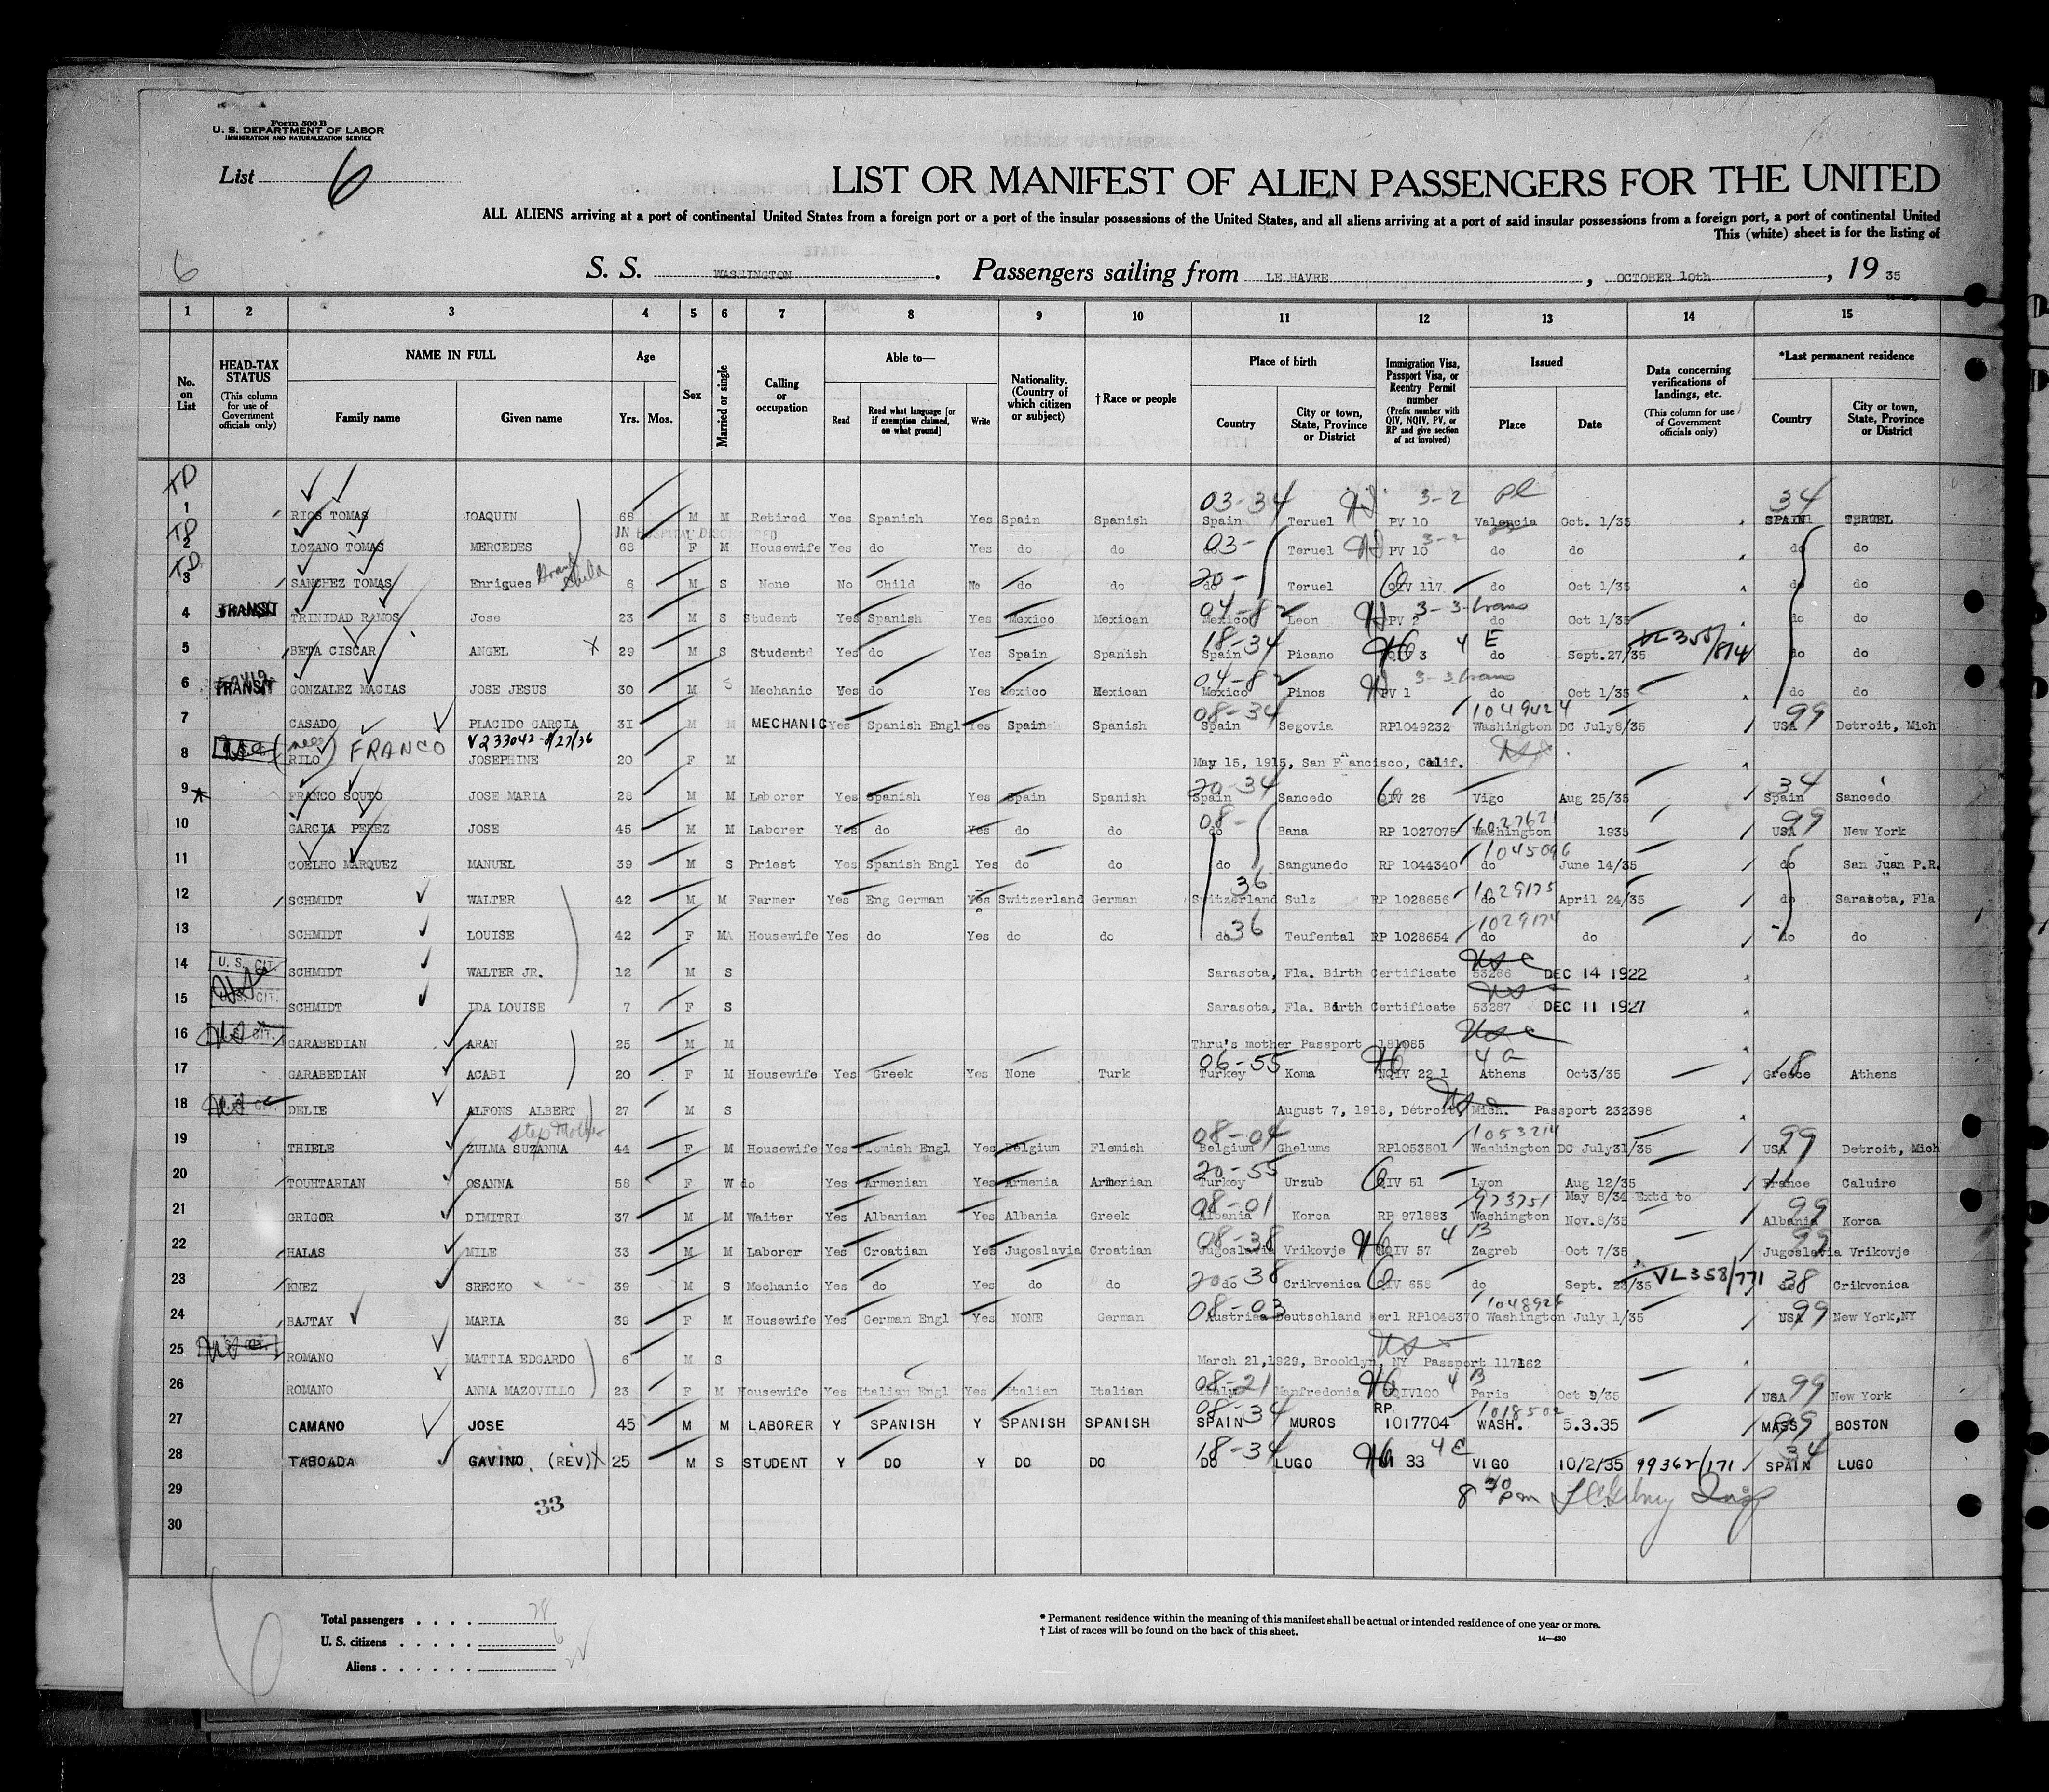 Form 500 B
U. S. DEPARTMENT OF LABOR
IMMIGRATION AND NATURALIZATION SERVICE
List 6
LIST OR MANIFEST OF ALIEN PASSENGERS FOR THE UNITED
ALL ALIENS arriving at a port of continental United States from a foreign port or a port of the insular possessions of the United States, and all aliens arriving at a port of said insular possessions from a foreign port, a port of continental United
This (white) sheet is for the listing of
6
S. S. WASHINGTON. Passengers sailing from LE HAVRE, OCTOBER 10th, 19 35
1 2 3 4 5 6 7 8 9 10 11 12 13 14 15
No. on List
HEAD-TAX STATUS (This column for use of Government officials only)
NAME IN FULL Family name Given name
Age Yrs. Mos.
Sex
Married or single
Calling or occupation
Able to— Read Read what language [or if exemption claimed, on what ground] Write
Nationality. (Country of which citizen or subject)
† Race or people
Place of birth Country City or town, State, Province or District
Immigration Visa, Passport Visa, or Reentry Permit number (Prefix number with QIV, NQIV, PV, or RP and give section of act involved)
Issued Place Date
Data concerning verifications of landings, etc. (This column for use of Government officials only)
*Last permanent residence Country City or town, State, Province or District
TD 03-34 3-2 pl 34
1 RIOS TOMAS JOAQUIN 68 M M Retired Yes Spanish Yes Spain Spanish Spain Teruel PV 10 Valencia Oct. 1/35 SPAIN TERUEL
TD IN HOSPITAL DISCHARGED 03- 3-2
2 LOZANO TOMAS MERCEDES 68 F M Housewife Yes do Yes do do do Teruel PV 10 do do do do
TD 20-
3 SANCHEZ TOMAS Enrigues 6 M S None No Child No do do do Teruel QIV 117 do Oct 1/35 do do
TRANSIT 04-82 3-3 trans
4 TRINIDAD RAMOS Jose 23 M S Student Yes Spanish Yes Mexico Mexican Mexico Leon PV 2 do Oct 1/35 do do
18-34 4 E VL 355/814
5 BETA CISCAR ANGEL X 29 M S Student Yes do Yes Spain Spanish Spain Picano 3 do Sept.27/35 do do
TRANSIT 04-82 3-3 trans
6 GONZALEZ MACIAS JOSE JESUS 30 M S Mechanic Yes do Yes Mexico Mexican Mexico Pinos PV 1 do Oct 1/35 do do
08-34 1049424 99
7 CASADO PLACIDO GARCIA 31 M M MECHANIC Yes Spanish Engl Yes Spain Spanish Spain Segovia RP1049232 Washington DC July8/35 USA Detroit, Mich
(nee) FRANCO V233042-8/27/36
8 RILO JOSEPHINE 20 F M May 15, 1915, San Francisco, Calif.
20-34 34
9 FRANCO SOUTO JOSE MARIA 28 M M Laborer Yes Spanish Yes Spain Spanish Spain Sancedo QIV 26 Vigo Aug 25/35 Spain Sancedo
08- 1027621 99
10 GARCIA PEREZ JOSE 45 M M Laborer Yes do Yes do do do Bana RP 1027075 Washington 1935 USA New York
1045096
11 COELHO MARQUEZ MANUEL 39 M S Priest Yes Spanish Engl Yes do do do Sangunedo RP 1044340 do June 14/35 do San Juan P.R.
36 1029175
12 SCHMIDT WALTER 42 M M Farmer Yes Eng German Yes Switzerland German Switzerland Sulz RP 1028656 do April 24/35 do Sarasota, Fla
36 1029174
13 SCHMIDT LOUISE 42 F M Housewife Yes do Yes do do do Teufental RP 1028654 do do do do
U. S. CIT. USC
14 SCHMIDT WALTER JR. 12 M S Sarasota, Fla. Birth Certificate 53286 DEC 14 1922
U. S. CIT.
15 SCHMIDT IDA LOUISE 7 F S Sarasota, Fla. Birth Certificate 53287 DEC 11 1927
U. S. CIT. USC
16 GARABEDIAN ARAN 25 M M Thru's mother Passport 181985
06-55 4 a 18
17 GARABEDIAN ACABI 20 F M Housewife Yes Greek Yes None Turk Turkey Koma NQIV 22 1 Athens Oct3/35 Greece Athens
18 DELIE ALFONS ALBERT 27 M S August 7, 1918, Detroit, Mich. Passport 232398
step Mother 08-04 1053214 99
19 THIELE ZULMA SUZANNA 44 F M Housewife Yes Flemish Engl Yes Belgium Flemish Belgium Ghelums RP1053501 Washington DC July31/35 USA Detroit, Mich
20-55 11
20 TOUHTARIAN OSANNA 58 F W do Yes Armenian Yes Armenia Armenian Turkey Urzub QIV 51 Lyon Aug 12/35 France Caluire
08-01 973751 May 8/34 Extd to 99
21 GRIGOR DIMITRI 37 M M Waiter Yes Albanian Yes Albania Greek Albania Korca RP 971883 Washington Nov.8/35 Albania Korca
08-38 4 B 99
22 HALAS MILE 33 M M Laborer Yes Croatian Yes Jugoslavia Croatian Jugoslavia Vrikovje NQIV 57 Zagreb Oct 7/35 Jugoslavia Vrikovje
20-38 VL358/771 38
23 KNEZ SRECKO 39 M S Mechanic Yes do Yes do do do Crikvenica QIV 658 do Sept. 23/35 do Crikvenica
08-03 1048926 99
24 BAJTAY MARIA 39 F M Housewife Yes German Engl Yes NONE German Austria Deutschland Werl RP1048370 Washington July 1/35 USA New York,NY
25 ROMANO MATTIA EDGARDO 6 M S March 21,1929, Brooklyn, NY Passport 117162
08-21 4 B 99
26 ROMANO ANNA MAZOVILLO 23 F M Housewife Yes Italian Engl Yes Italian Italian Italy Manfredonia NQIV100 Paris Oct 9/35 USA New York
08-34 RP. 1018502 99
27 CAMANO JOSE 45 M M LABORER Y SPANISH Y SPANISH SPANISH SPAIN MUROS 1017704 WASH. 5.3.35 MASS BOSTON
18-34 4 E 34
28 TABOADA GAVINO. (REV)X 25 M S STUDENT Y DO Y DO DO DO LUGO 33 VIGO 10/2/35 99362/171 SPAIN LUGO
29 8 30 pm
33
30
6
Total passengers . . . . 28
U. S. citizens . . . . . 6
Aliens . . . . . . 22
* Permanent residence within the meaning of this manifest shall be actual or intended residence of one year or more.
† List of races will be found on the back of this sheet.
14—430